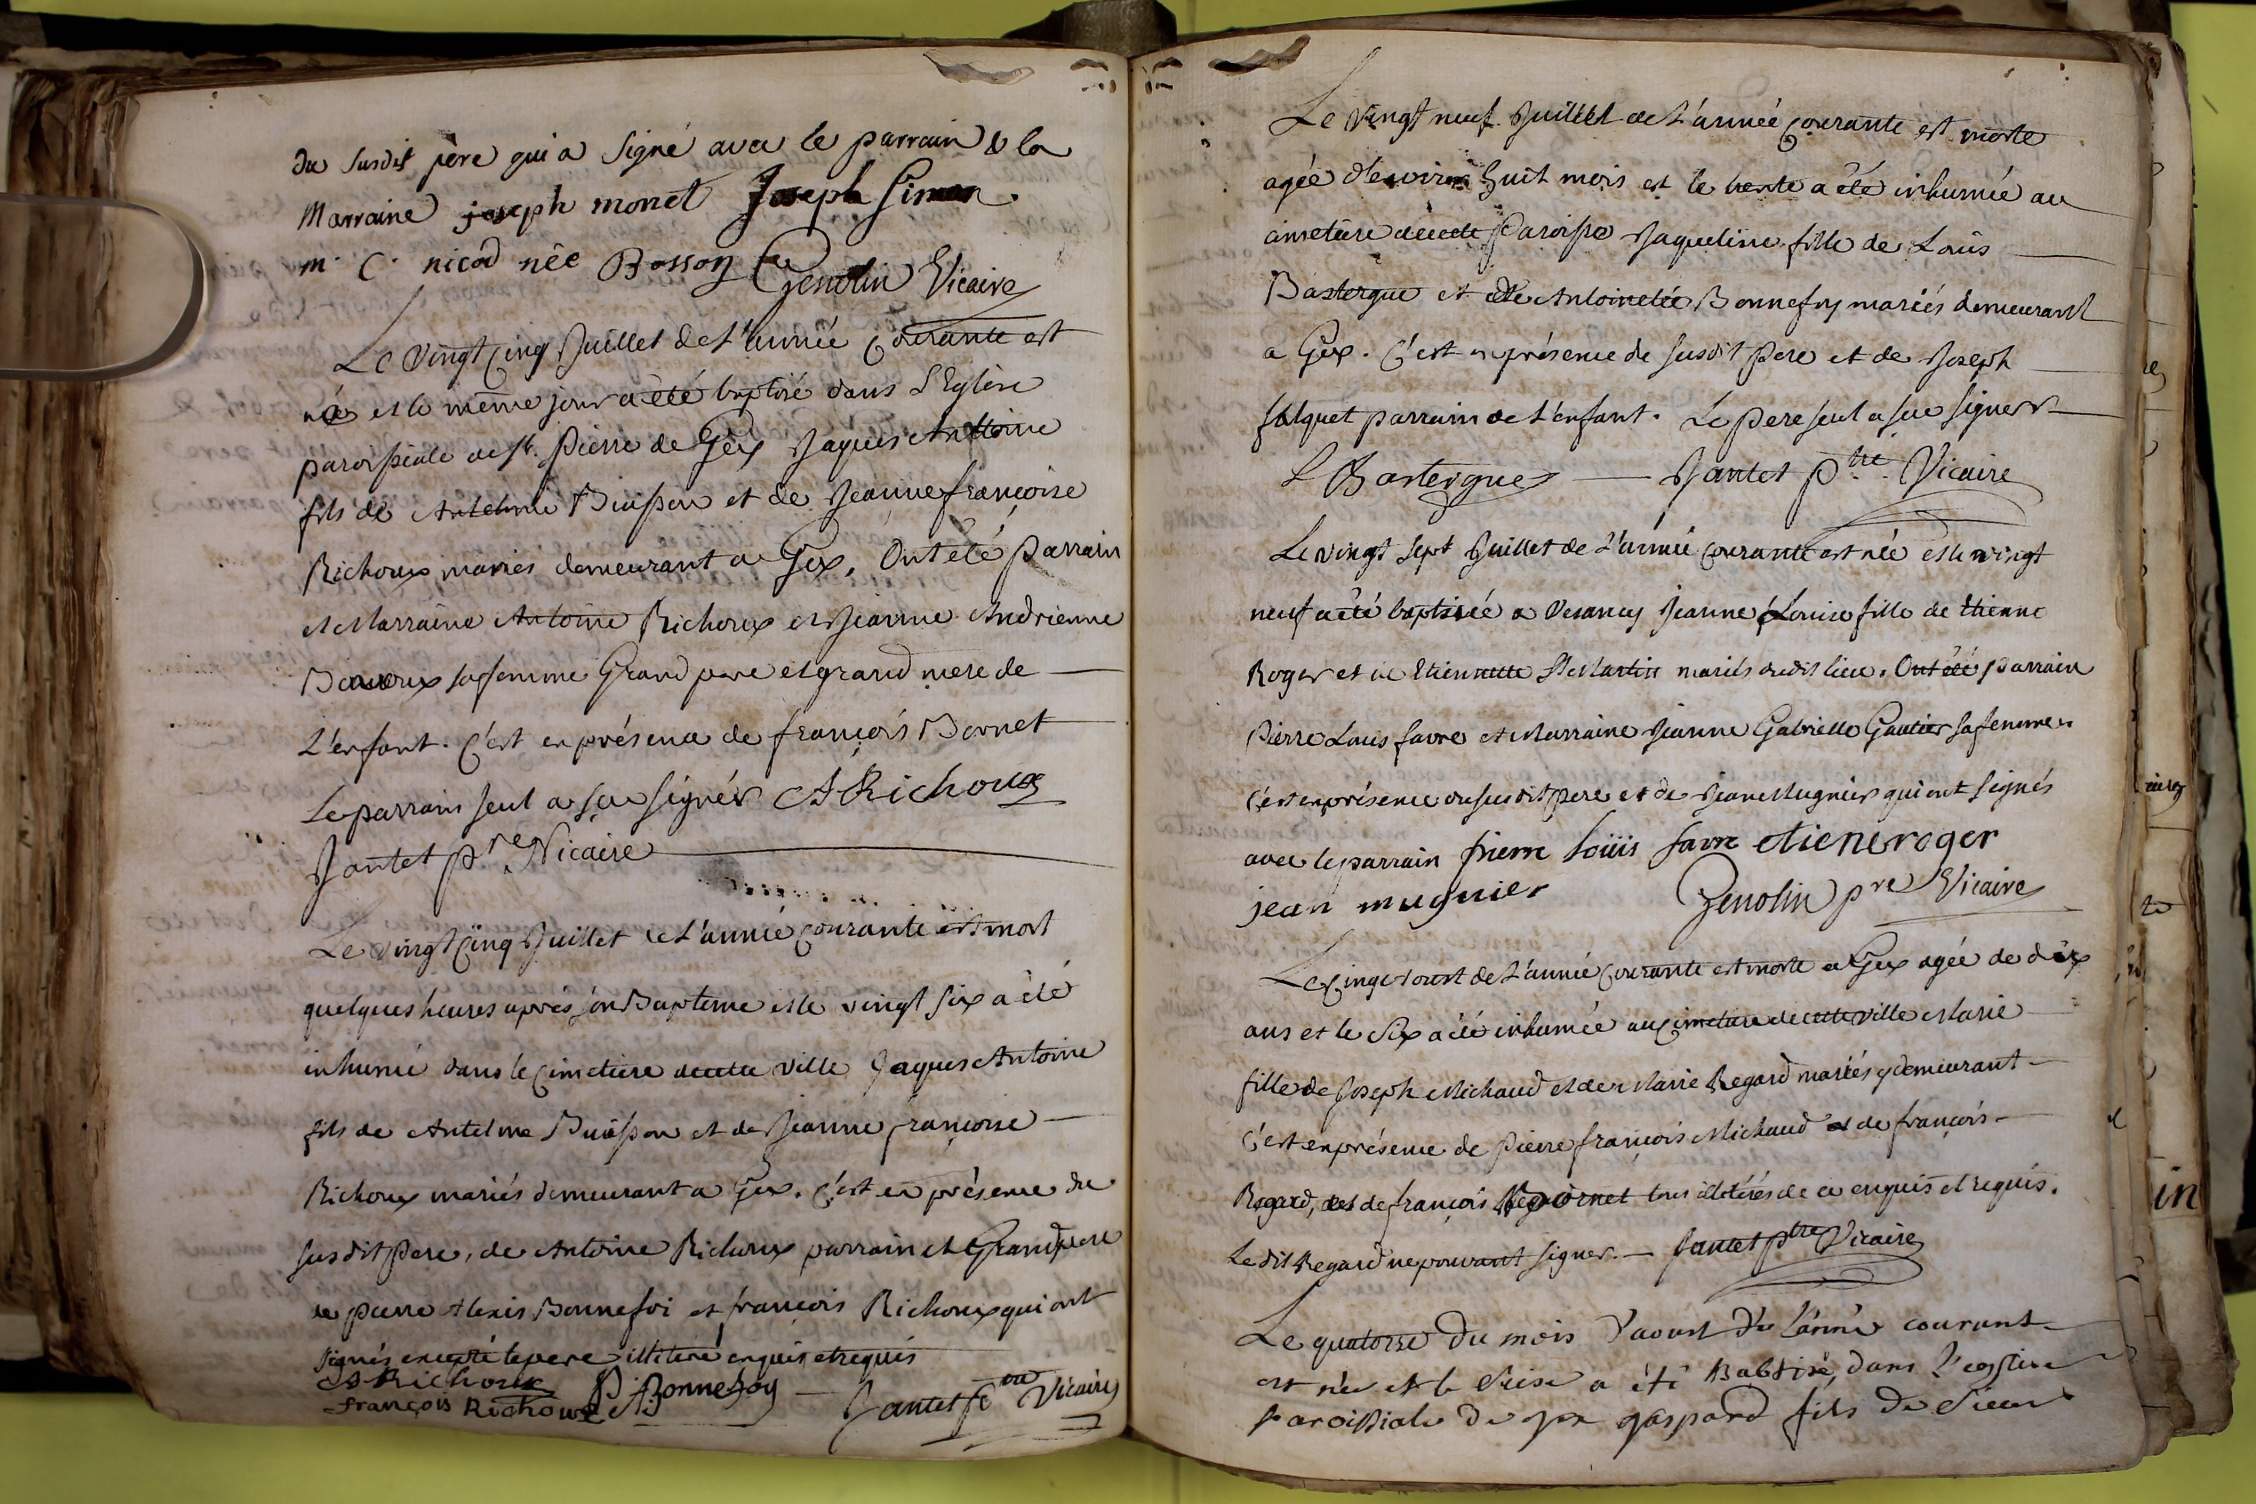 du susdit père qui a signé avec le parrain & la
Marraine joseph monet Joseph Simon.
m. C. nicod née Bosson Genolin Vicaire
Le vingt cinq Juillet de L'année courante est
né et le même jour a été baptisé dans L'Eglise
paroissiale de St. Pierre de Gex Jaques Antoine
fils de Antelme Buisson et de Jeanne françoise
Richoux mariés demeurant a Gex. Ont été Parrain
et Marraine Antoine Richoux et Jeanne Andrienne
sa femme Grand pere et grand mere de
L'enfant. C'est en présence de françois Bornet
Le parrain seul a scu signer A Richoux
Jantet pre Vicaire
Le vingt cinq Juillet de L'année courante est mort
quelques heures après son Bapteme et le vingt six a été
inhumé dans le cimetiere de cette ville Jaques Antoine
fils de Antelme Buisson et de Jeanne françoise
Richoux mariés demeurant a Gex. C'est en présence du
susdit Pere, de Antoine Richoux parrain et Grand pere
de pierre Alexis Bonnefoi et françois Richoux qui ont
signés excepté le pere illiteré enquis et requis
A Richoux P. A. Bonnefoy Jantet ptre Vicaire
françois Richoux
Le vingt neuf Juillet de L'année courante est morte
agée d'environ huit mois et le trente a été inhumée au
cimetiere de cette Paroisse Jaqueline fille de Louis
Bastergue et de Antoinette Bonnefoy mariés demeurant
a Gex. C'est en présence de susdit Pere et de Joseph
falquet parrain de L'enfant. Le pere seul a scu signer
L Bastergue Jantet ptre Vicaire
Le vingt sept Juillet de L'année courante est née et le vingt
neuf a été baptisée a Vesancy Jeanne Louise fille de Etienne
Roger et de Etiennette Martin mariés dudit lieu. Ont été parrain
Pierre Louis favre et Marraine Jeanne Gabrielle Gautier sa femme.
C'est en présence du susdit Pere et de Jean Mugnier qui ont signés
avec le parrain pierre loüis favre etiene roger
jean mugnier Genolin pre Vicaire
Le cinq Aoust de L'année courante est morte a Gex agée de deux
ans et le six a été inhumée au cimetiere de cette ville Marie
fille de Joseph Michaud et de Marie Regard mariés y demeurant
C'est en présence de Pierre françois Michaud et de françois
Regard, et de françois tous illiterés de ce enquis et requis.
Le dit Regard ne pouvant signer. Jantet ptre Vicaire
Le quatorze du mois d'aoust de L'anné courant
est née et le seise a été Babtisé, dans l'eglise
Paroissiale de gex gaspard fils de Sieur
in